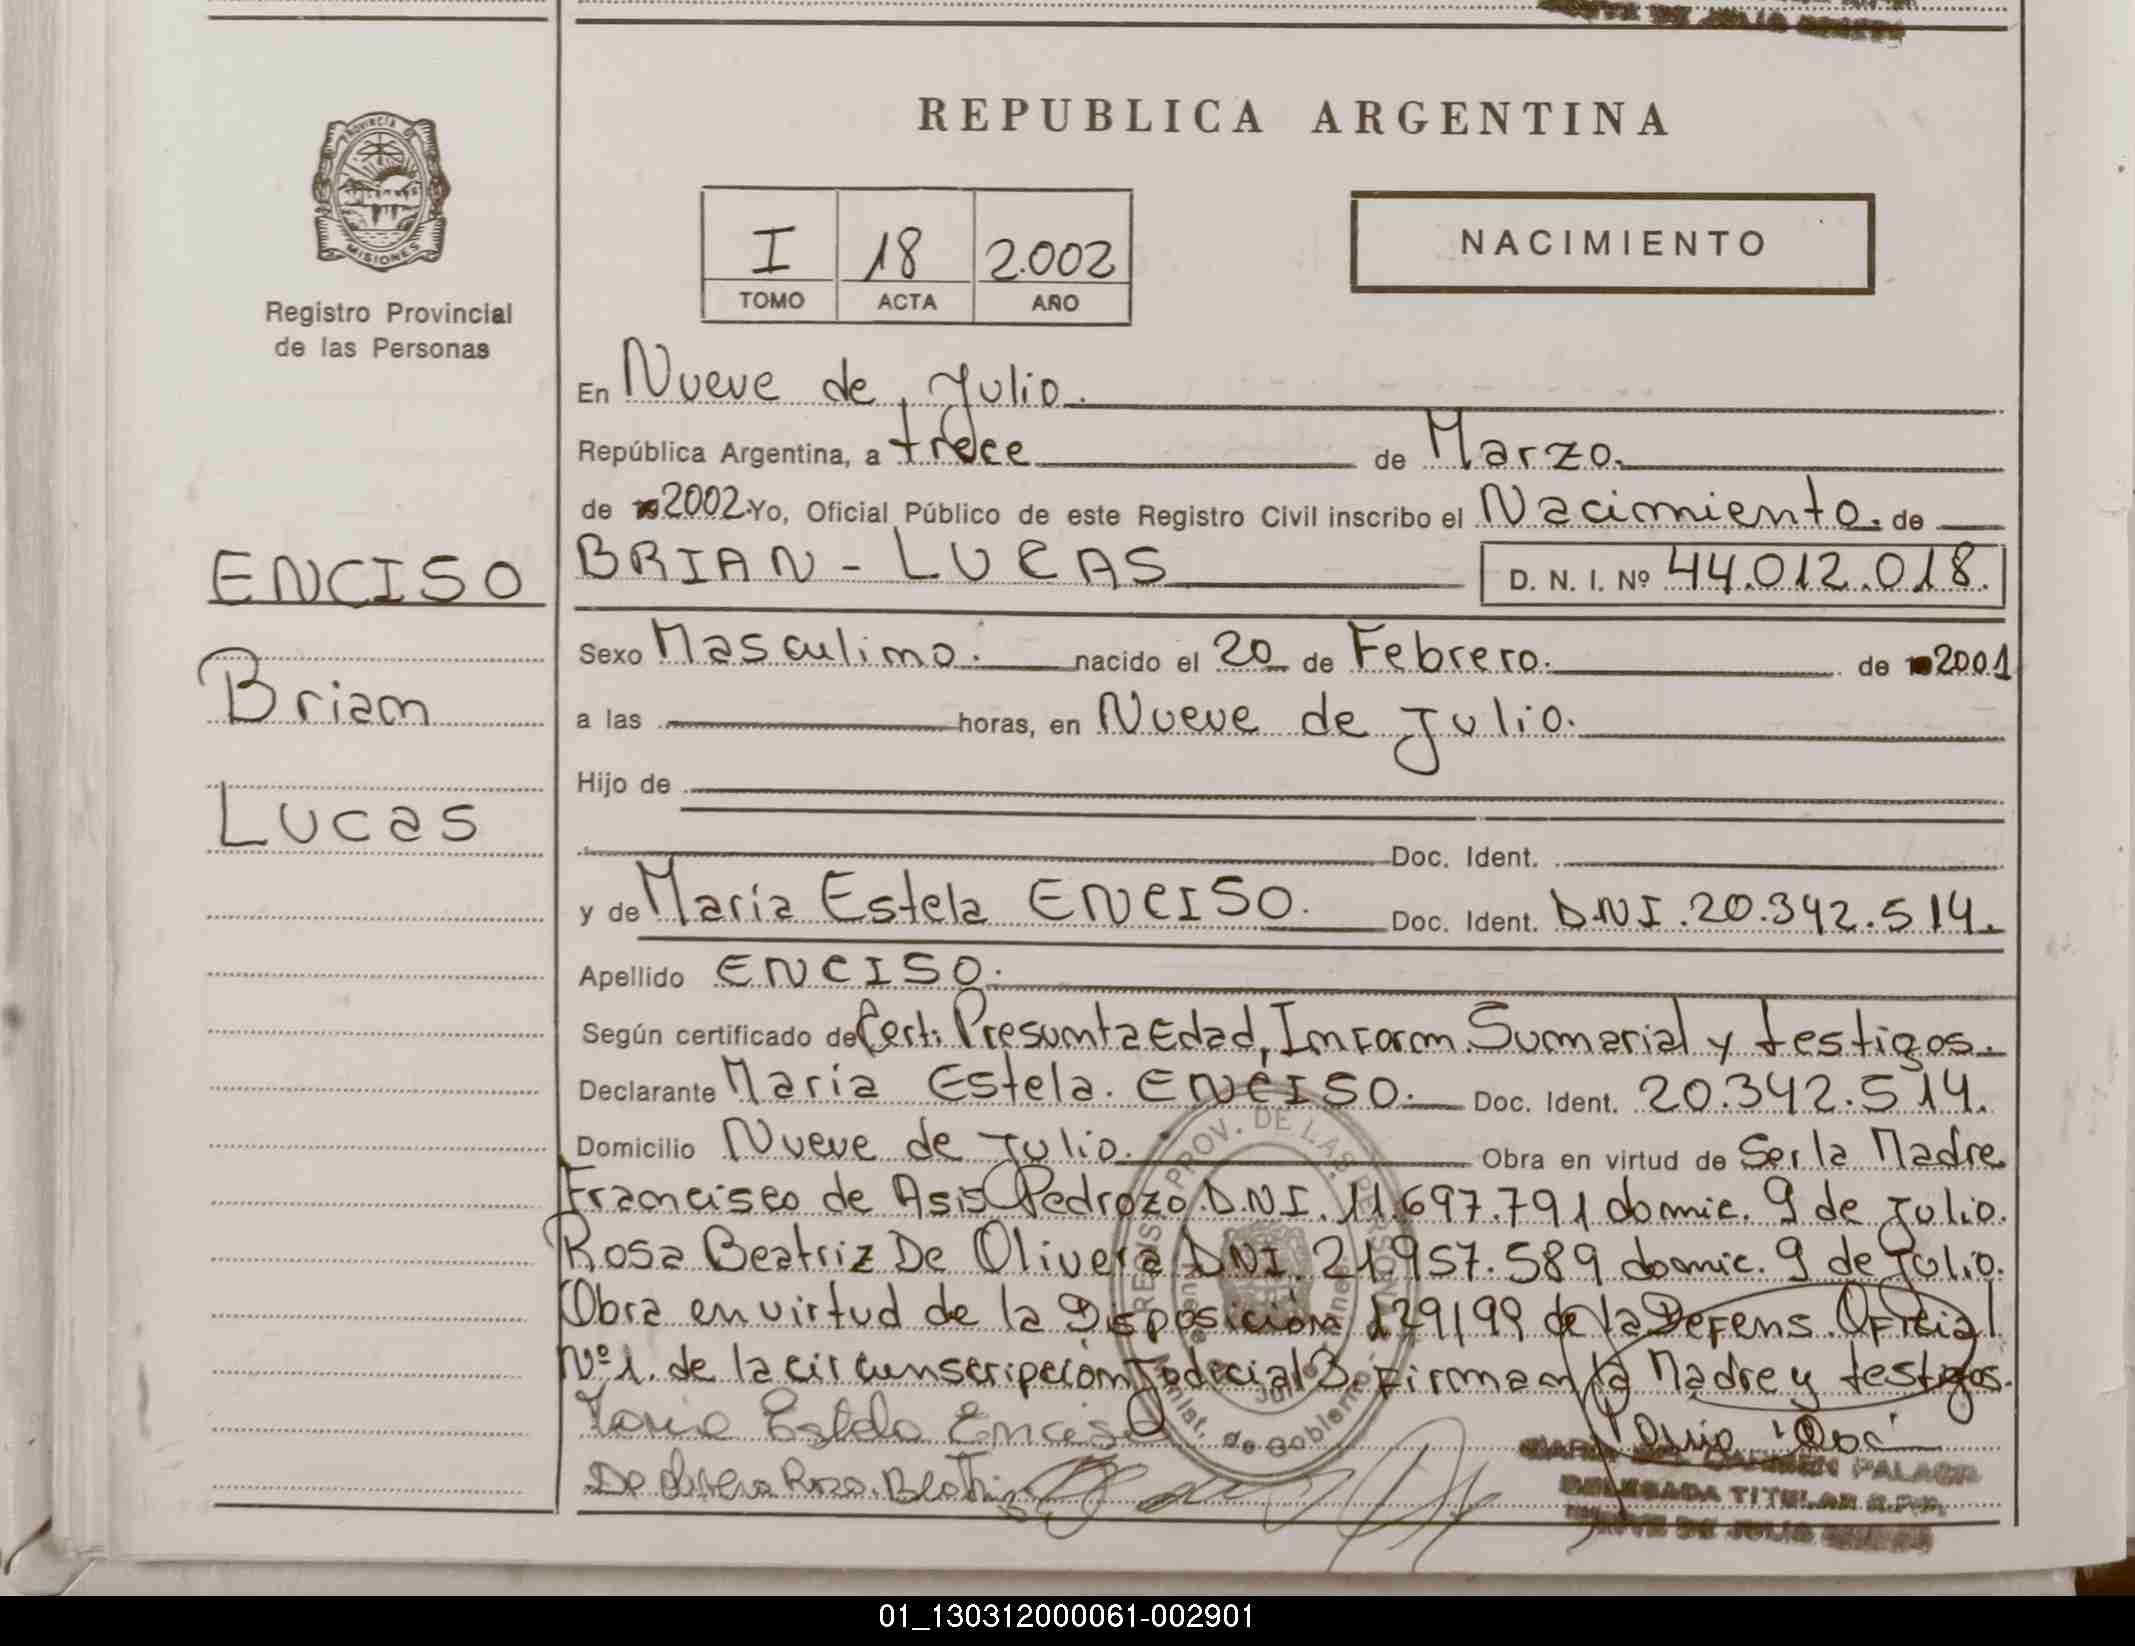 REPUBLICA ARGENTINA
PROVINCIA DE MISIONES
Registro Provincial
de las Personas
I 18 2.002
TOMO ACTA AÑO
NACIMIENTO
En Nueve de Julio.
República Argentina, a trece de Marzo.
de 2002. Yo, Oficial Público de este Registro Civil inscribo el Nacimiento. de
ENCISO
Brian
Lucas
BRIAN - LUCAS D. N. I. Nº 44.012.018.
Sexo Masculino. nacido el 20 de Febrero. de 2001
a las horas, en Nueve de Julio.
Hijo de
Doc. Ident.
y de María Estela ENCISO. Doc. Ident. D.N.I. 20.342.514.
Apellido ENCISO.
Según certificado de Cert. Presunta Edad, Inform. Sumarial y testigos.
Declarante María Estela. ENCISO. Doc. Ident. 20.342.514.
Domicilio Nueve de Julio. Obra en virtud de Ser la Madre
Francisco de Asis Pedrozo D.N.I. 11.697.791 domic. 9 de Julio.
Rosa Beatriz De Olivera DNI. 21.957.589 domic. 9 de Julio.
Obra en virtud de la Disposición 129/99 de la Defens. Oficial
Nº 1. de la circunscripción Judicial 3. Firman la Madre y testigos.
Maria Estela Enciso
De Olivera Rosa Beatriz
DELEGADA TITULAR R.P.P.
NUEVE DE JULIO
01_130312000061-002901